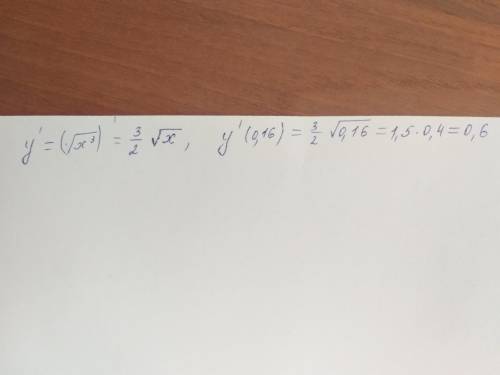 y' = (√x³)' = 3/2 √x, y'(0,16) = 3/2 √0,16 = 1,5 · 0,4 = 0,6